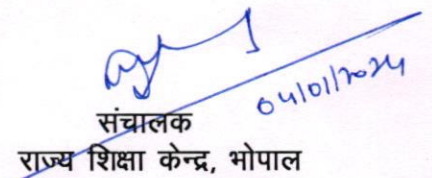 04/01/2024
संचालक
राज्य शिक्षा केन्द्र, भोपाल